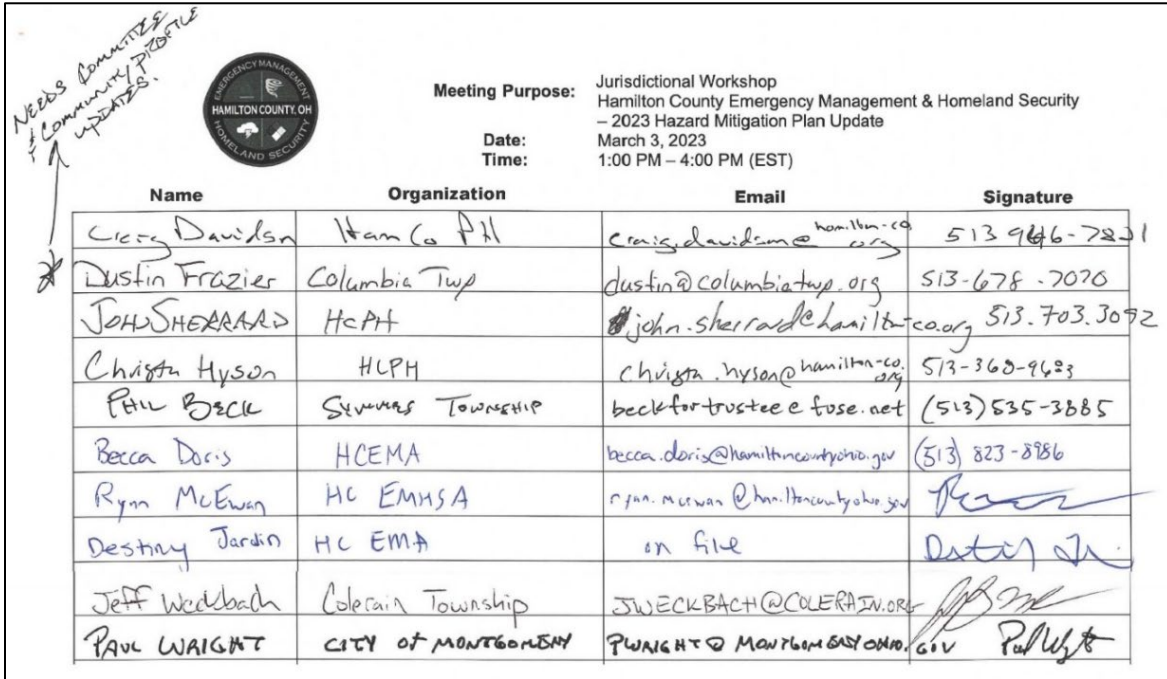 NEEDS COMMITTEE
& COMMUNITY PROFILE
UPDATES.
EMERGENCY MANAGEMENT
HAMILTON COUNTY, OH
HOMELAND SECURITY
Meeting Purpose: Jurisdictional Workshop
Hamilton County Emergency Management & Homeland Security
– 2023 Hazard Mitigation Plan Update
Date: March 3, 2023
Time: 1:00 PM – 4:00 PM (EST)
Name Organization Email Signature
Craig Davidson HamCo PH craig.davidson@hamilton-co.org 513 946-7831
* Dustin Frazier Columbia Twp dustin@columbiatwp.org 513-678-7070
JOHN SHERRARD HCPH john.sherrard@hamilton-co.org 513.703.3092
Christa Hyson HCPH christa.hyson@hamilton-co.org 513-368-9683
PHIL BECK SYMMES TOWNSHIP beckfortrustee@fuse.net (513)535-3885
Becca Doris HCEMA becca.doris@hamiltoncountyohio.gov (513) 823-8986
Ryan McEwan HC EMHSA ryan.mcewan@hamiltoncountyohio.gov
Destiny Jardin HC EMA on file
Jeff Weckbach Colerain Township JWECKBACH@COLERAIN.ORG
PAUL WRIGHT CITY OF MONTGOMERY PWRIGHT@MONTGOMERYOHIO.GOV Paul Wright